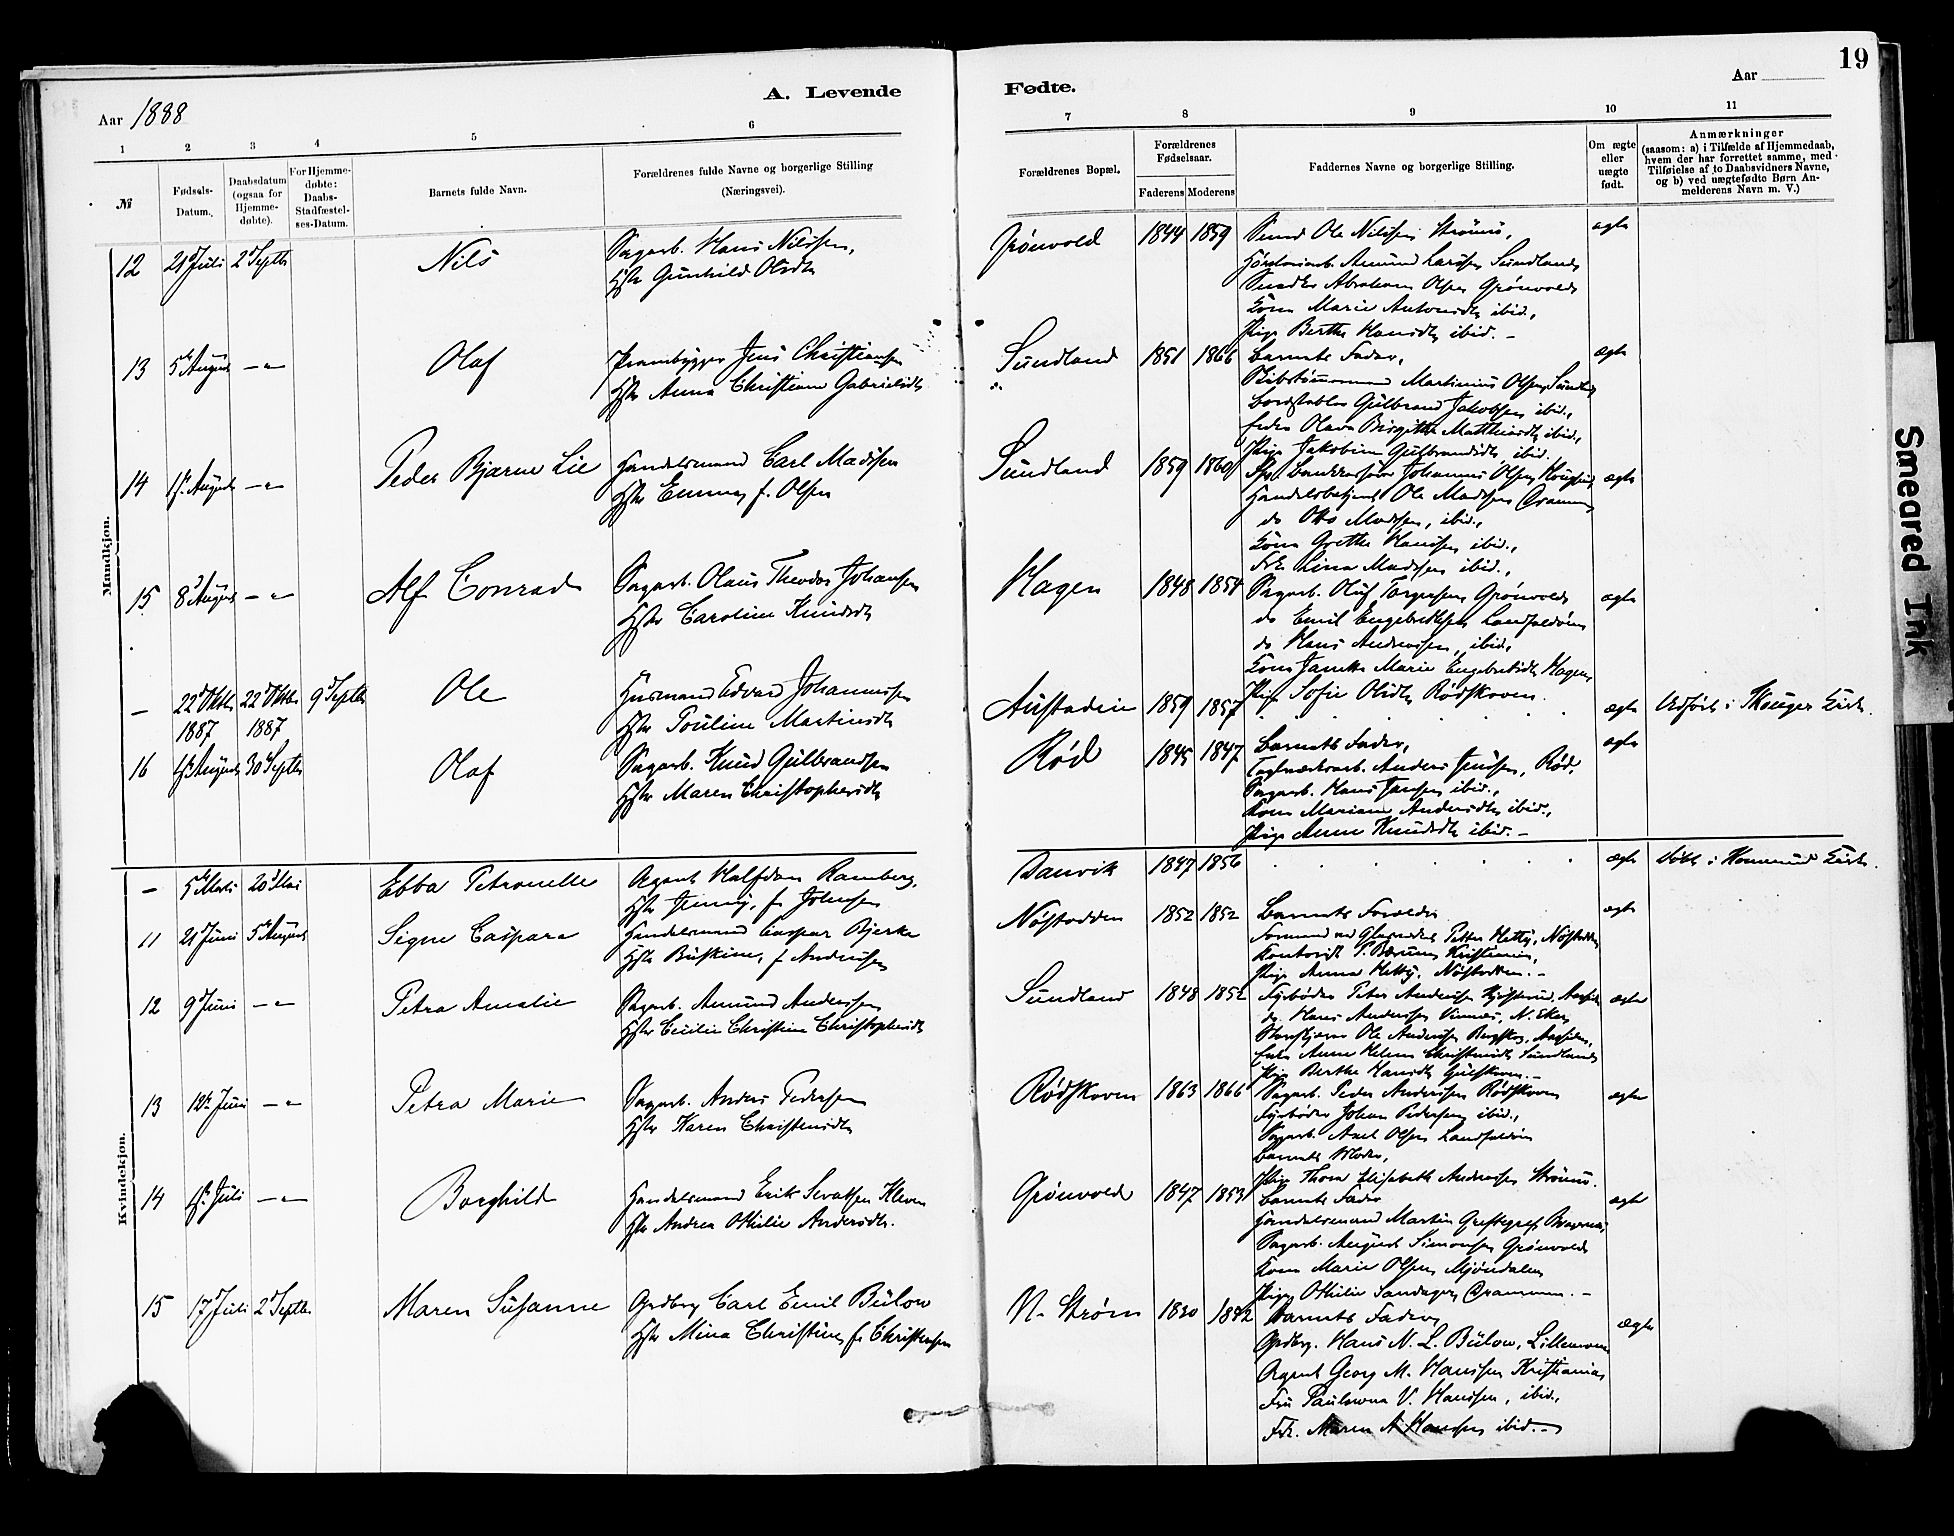 19
Aar
A. Levende Fødte.
Aar 1888
1 2 3 4 5 6 7 8 9 10 11
№
Fødsels-Datum.
Daabsdatum (ogsaa for Hjemmedøbte).
For Hjemmedøbte: Daabs-Stadfæstelses-Datum.
Barnets fulde Navn.
Forældrenes fulde Navne og borgerlige Stilling (Næringsvei).
Forældrenes Bopæl.
Forældrenes Fødselsaar.
Faderens Moderens
Faddernes Navne og borgerlige Stilling.
Om ægte eller uægte født.
Anmærkninger
(saasom: a) i Tilfælde af Hjemmedaab, hvem der har forrettet samme, med Tilføielse af to Daabsvidners Navne, og b) ved uægtefødte Børn Anmelderens Navn m. V.)
Mandkjøn.
12 21d Juli 2d Septbr Nils
Sagarb. Hans Nilssen,
Hstr Gunhild Olsdtr
Grönvold 1844 1859
Svend Ole Nilssen Strömsö,
Amund Larssen Sundland,
Abraham Olsen Grönvold,
Kone Marie Antonisdtr ibid.,
Pige Berthe Hansdtr ibid. –
ægte
13 5te August – " – Olaf
Prambygger Jens Christiansen
Hstr Anna Christiane Gabrielsdtr
Sundland 1851 1866
Barnets Fader,
Skibstömmermand Martinius Olsen, Sundland
Bordstabler Gulbrand Jakobsen ibid.,
Enke Olava Birgitte Matthiasdtr ibid.,
Pige Jakobine Gulbrandsdtr ibid.
ægte
14 August – " – Peder Bjarne Lie
Handelsmand Carl Madsen
Hstr Emma f. Olsen
Sundland 1859 1860
Johannes Olsen
Handelsbetjent Ole Madsen Drammen
do Otto Madsen, ibid.,
Kone Grethe Hansen ibid.,
Frk. Lina Madsen ibid.,
ægte
15 8d August – " – Alf Conrad
Sagarb. Olaus Theodor Johansen
Hstr Caroline Knudsdtr
Hagen 1848 1854
Sagarb. Oluf Torgersen Grönvold
do Emil Engebretsen Landfaldöen
do Hans Andersen, ibid,
Kone Janette Marie Engebretsdtr Hagen
Pige Sofie Olsdtr Rødskoven.
ægte
– 22d Oktbr 1887 22d Oktbr 1887 9d Septbr Ole
Husmand Edvard Johannessen
Hstr Pouline Martinsdtr
Austadeie 1859 1857
ægte Udført i Skouger Kirke.
16 August 30te Septbr Olaf
Sagarb. Knud Gulbrandsen
Hstr Maren Christophersdtr
Rød 1845 1847
Barnets Fader,
Teglværksarb. Anders Jensen, Rød,
Sagarb. Hans Jansen ibid.,
Kone Mariane Andersdtr ibid.,
Pige Anne Knudsdtr ibid. –
ægte
Kvindekjøn.
– 5te Marts 20d Mai Ebba Petronelle
Agent Halfdan Ramberg,
Hstr Jenny, f. Johnsen
Danvik 1847 1856
ægte Døbt i Kirke.
11 21d Juni 5te August Signe Caspara
Handelsmand Caspar Bjerke
Hstr f. Andersen
Nøstodden 1852 1852
Barnets Forældre
Formand ved Glasværket Petter Hetty, Nøstodden
Kontorist P. Bærum, Kristiania,
Pige Anna Hetty, Nøstodden. –
ægte
12 9d Juni – " – Petra Amalie
Sagarb. Amund Andersen
Hstr Cecilie Christine Christophersdtr
Sundland 1848 1852
Fyrbøder Peter Andersen
do. Hans Andersen N. Eker
Ole Andersen
Enke Anne Helene Sundland
Pige Berthe Hansdtr Gulskoven. –
ægte
13 12te Juni – " – Petra Marie
Sagarb. Anders Pedersen
Hstr Karen Christensdtr
Rødskoven 1863 1866
Sagarb. Peder Andersen Rødskoven
Fyrbøder Johan Pedersen ibid.,
Sagarb. Axel Olsen Landfaldöen
Barnets Moder,
Pige Thora Elisabeth Andersen Strömsö.
ægte
14 Juli – " – Borghild
Handelsmand Erik Kleven
Hstr Andrea Othilie Andersdtr.
Grönvold 1847 1853
Barnets Fader
Handelsmand Martin Bragernes,
Sagarb. August Simonsen Grönvold
Kone Marie Olsen Mjöndalen
Pige Othilie Sandager, Drammen. –
ægte
15 17d Juli 2d Septbr Maren Susanne
Grdbrg Carl Emil Bülow
Hstr Mina Christine, f. Christensen
N. Strøm 1830 1842
Barnets Fader,
Grdbrg. Hans N. L. Bülow,
Agent Georg M. Hanssen Kristiania,
Fru Paulowna V. Hanssen, ibid.,
Frk. Maren A Hanssen ibid. –
ægte
Smeared Ink